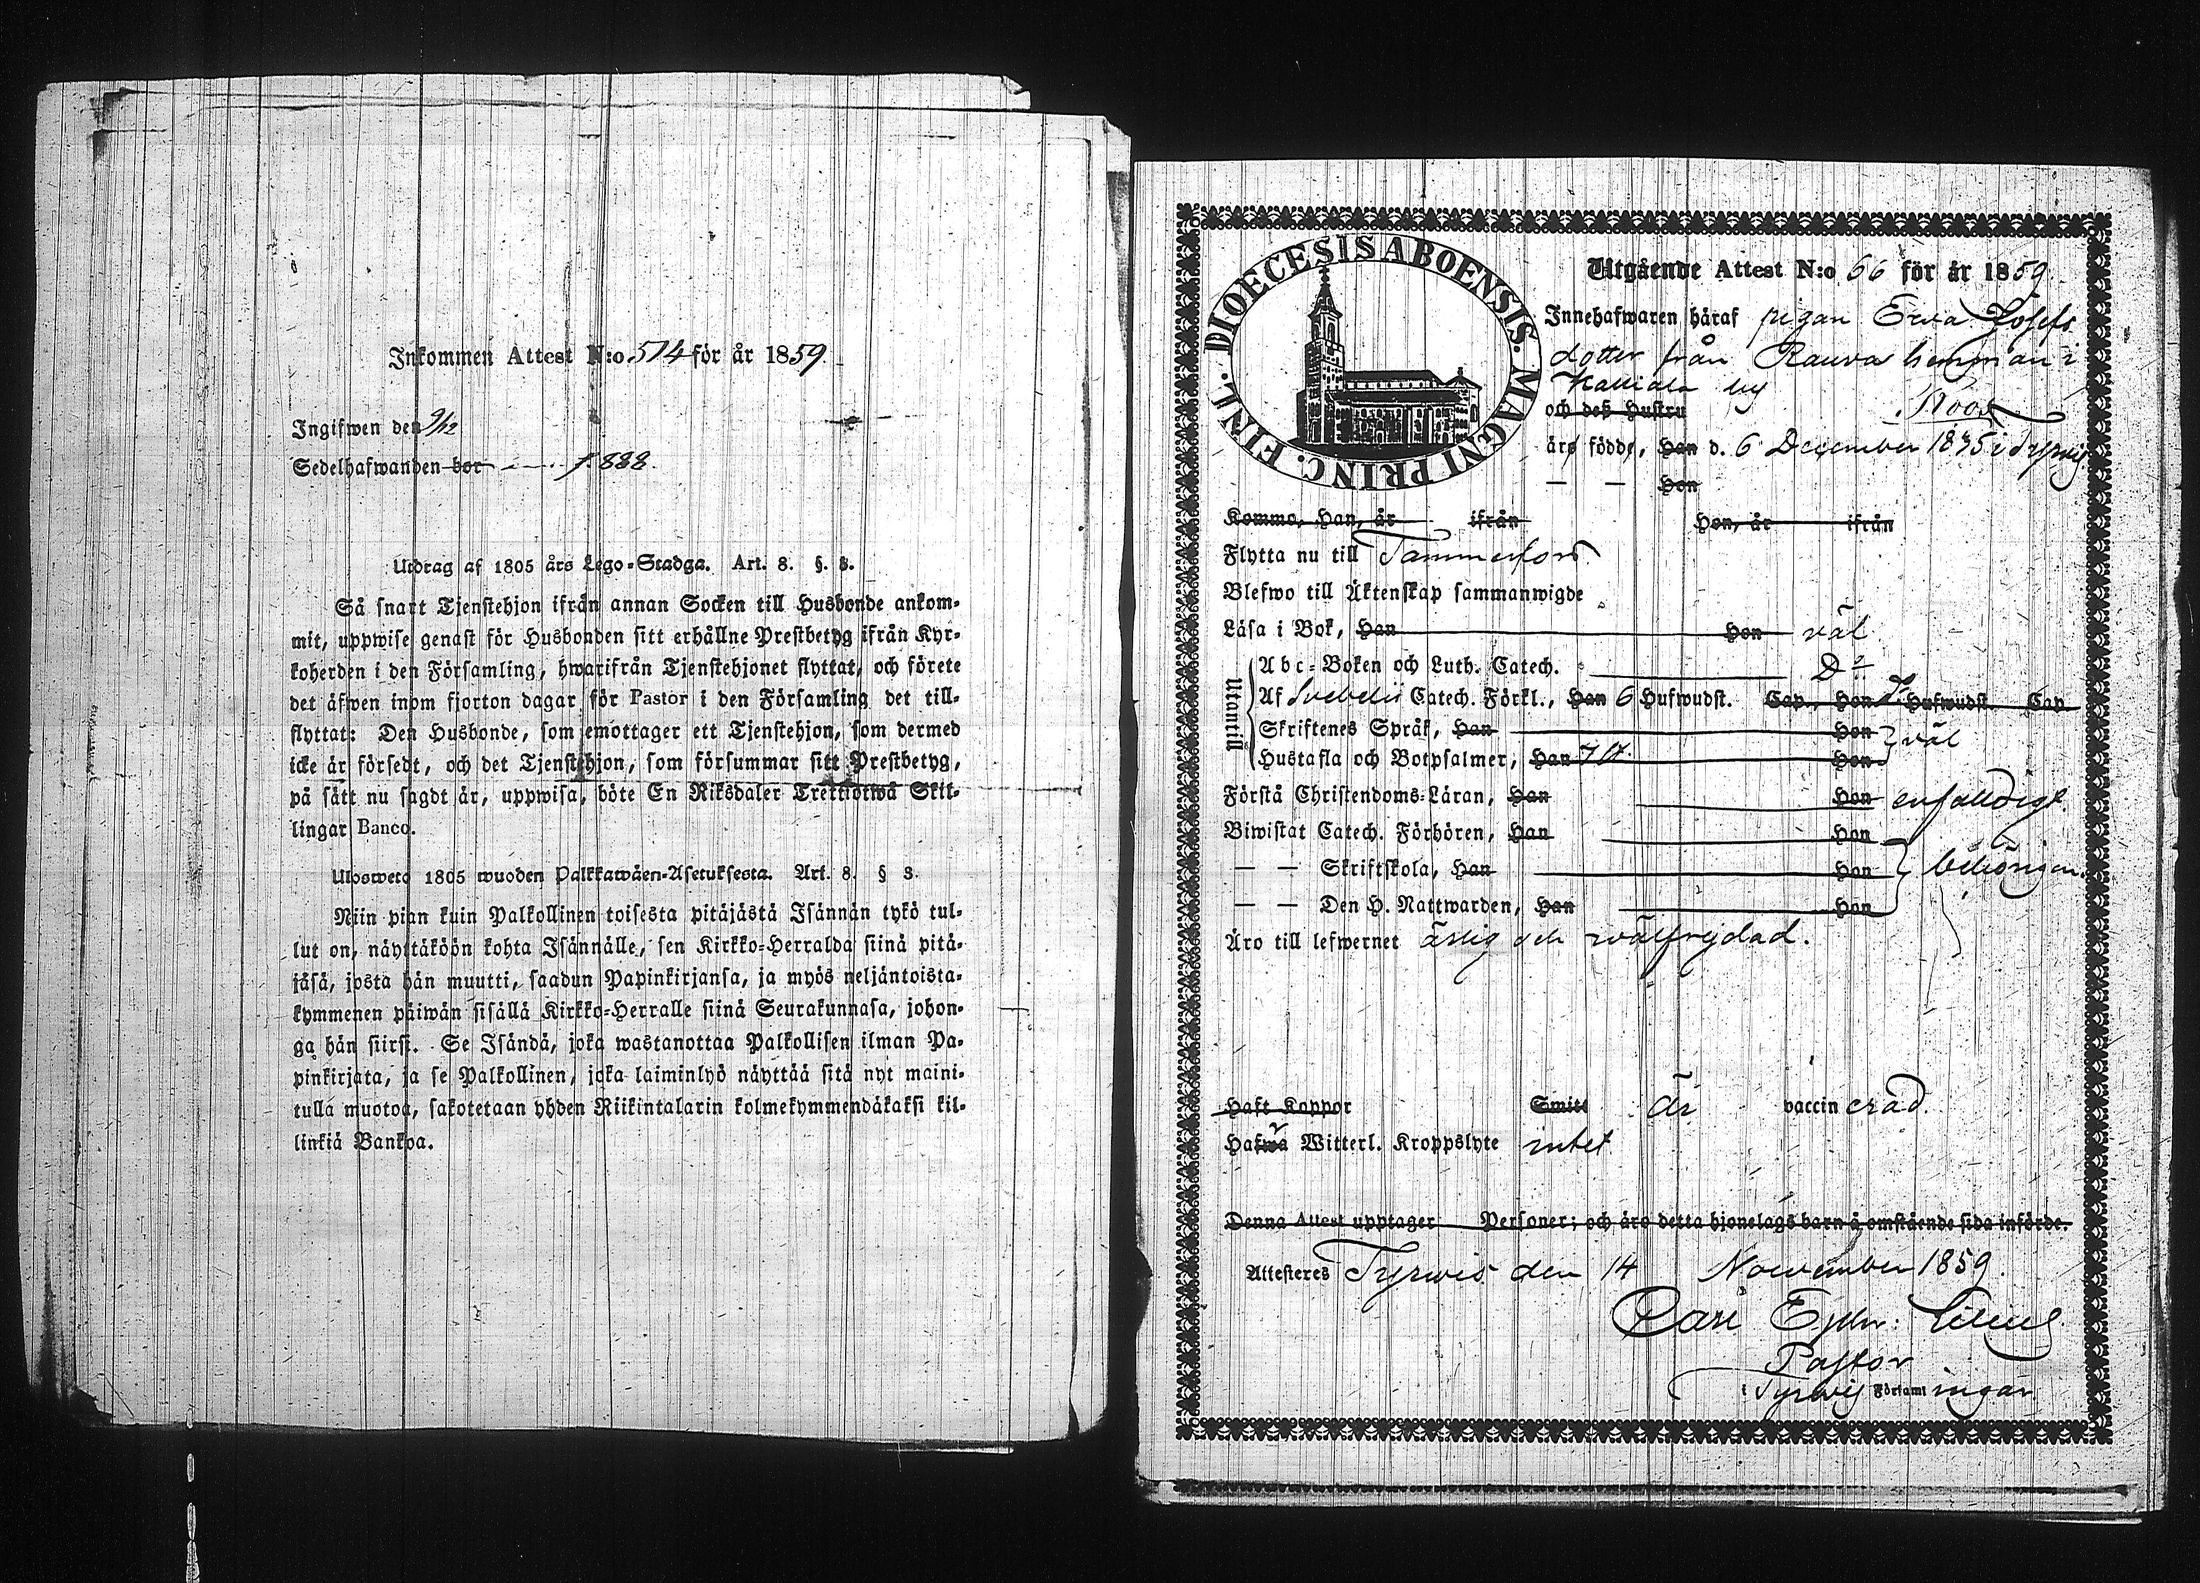 Inkommen Attest N:o 514 för år 1859
Ingifwen den 9/12
Sedelhafwanden bor f. 888.
Utdrag af 1805 års Lego-Stadga. Art. 8. §. 3.
Så snart Tjenstehjon ifrån annan Socken till Husbonde ankom-
mit, uppwise genast för Husbonden sitt erhållne Prestbetyg ifrån Kyr-
koherden i den Församling, hwarifrån Tjenstehjonet flyttat, och förete
det äfwen inom fjorton dagar för Pastor i den Församling det till-
flyttat: Den Husbonde, som emottager ett Tjenstehjon, som dermed
icke är försedt, och det Tjenstehjon, som försummar sitt Prestbetyg,
på sätt nu sagdt är, uppwisa, böte En Riksdaler Trettiotwå Skil-
lingar Banco.
Ulosweto 1805 wuoden Palkkawäen-Asetuksesta. Art. 8. § 3.
Niin pian kuin Palkollinen toisesta pitäjästä Isännän tykö tul-
lut on, näyttäköön kohta Isännälle, sen Kirkko-Herralda siinä pitä-
jäsä, josta hän muutti, saadun Papinkirjansa, ja myös neljäntoista-
kymmenen päiwän sisällä Kirkko-Herralle siinä Seurakunnasa, johon-
ga hän siirsi. Se Isändä, joka wastanottaa Palkollisen ilman Pa-
pinkirjata, ja se Palkollinen, joka laiminlyö näyttää sitä nyt maini-
tulla muotoa, sakotetaan yhden Riikintalarin kolmekymmendäkaksi kil-
linkiä Bankoa.
DIOECESIS ABOENSIS. MAGNI PRINC. FINL.
Utgående Attest N:o 66 för år 1859
Innehafwaren häraf pigan Ewa Josefs
dotter från Rauva hemman i
Kalliala by
och deß Hustru Roos
äro födde, Han d. 6 December 1835 i Tyrvis
— — Hon
Komne, Han, år ifrån Hon, år ifrån
Flytta nu till Tammerfors
Blefwo till Äktenskap sammanwigde
Läsa i Bok, Han Hon väl
Utantill
Abc-Boken och Luth. Catech. Do
Af Svebelii Catech. Förkl., Han 6 Hufwudst. Cap., Hon Hufwudst. Cap
Skriftenes Språk, Han Hon väl
Hustafla och Botpsalmer, Han Hon
Förstå Christendoms-Läran, Han Hon enfalldigt
Biwistat Catech. Förhören, Han Hon
— — Skriftskola, Han Hon behörigen.
— — Den H. Nattwarden, Han Hon
Äro till lefwernet ärlig och wälfrejdad.
Haft Koppor Smitt är vaccinerad.
Hafwa Witterl. Kroppslyte intet
Denna Attest upptager Personer; och äro detta hjonelags barn å omstående sida införde.
Attesteres Tyrwis den 14 November 1859.
Carl
Pastor
i Tyrvis Församlingar